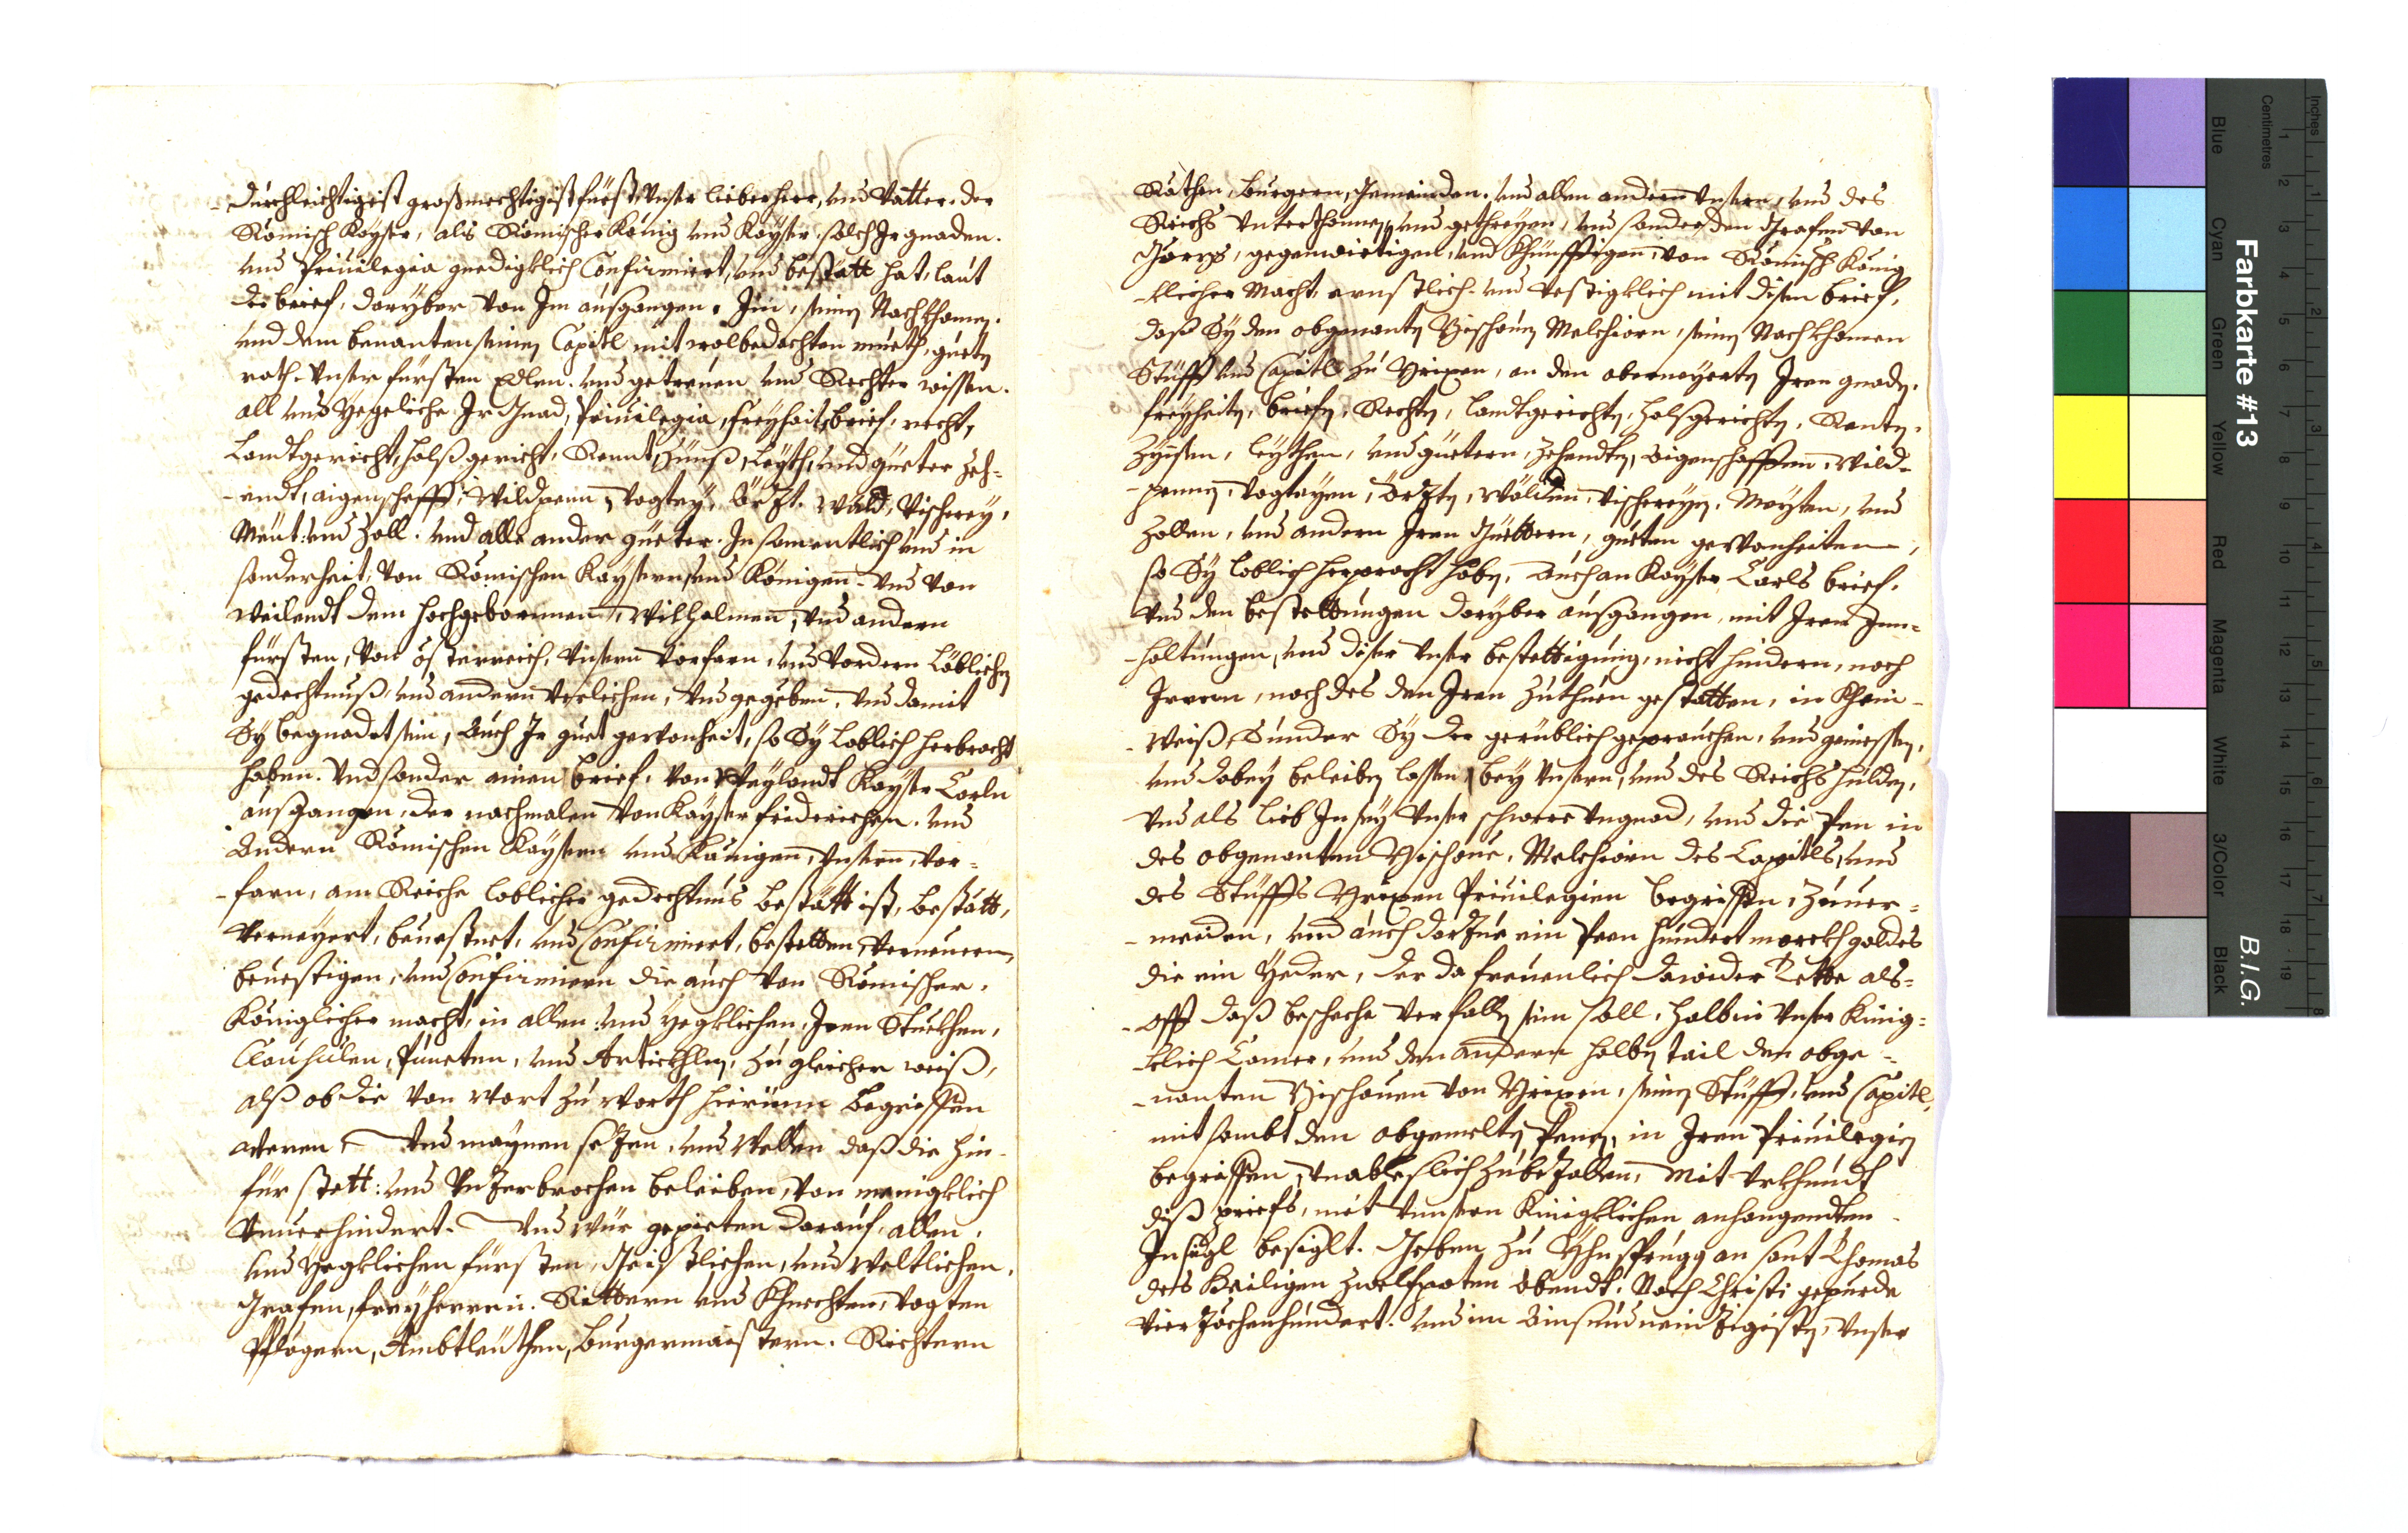 -durchleichtigist großmechtigist fürst, Vnser lieber herr, und Vatter. der
Römisch Kayser, als Römischer König und Kayser. solch Ir gnaden.
und Priuilegia gnedigklich Confirmiert, und bestätt hat, laut
der brief, daryber von Im außgangen. Im, seinen Nachkhomen.
und dem benanten seinen Capitl mit wolbedachten mueth, gueten
rath. Vnser fürsten Edlen. und getreuen und Rechter wissen.
all und Yegeliche Ir Gnad, Priuilegia, freyhait, brief, recht,
Landtgericht, halßgericht, Rennt, Zünß, Leyth, und güeter Zeh-
-endt, aigenschafft, Wildpenn, Vogtey, ärzt. Wäld, Vischerey,
Meut. und Zoll. und alle ander güeter. In samentlich und in
sonderheit, von Römischen Kaysern, und Königen. und von
weilendt dem hochgebornnen, Wilhalmen, und andern
fürsten, von össterreich, Vnsern Vorfarn, und Vordern Löblichen
gedechtnuß, und andern Verlichen, und gegeben, und damit
Sy begnadet sein, Auch Ir guet gewonheit, so Sy loblich herbracht
haben. Und sonder ainen brief, von Weylandt Kayser Carln
außgangen, der nachmalen von Kayser friderichen. und
Andern Römischen Kaysern und Künigen, Vnsern, Vor-
-farn, am Reiche loblicher gedechtnus bestätt ist, bestätt,
Verneyert, beuestnet, und Confirmiert, bestetten, Verneuern,
beuestigen, und Confirmiern die auch von Römischer,
Königlicher macht, in allen und yegklichen, Iren Stuckhen,
Clausulen, Puncten, und Artickhlen, zu gleicher weiß,
alß ob die von Wort zu Worth hierinnen begriffen
weren. Und maynen sezen, und Wellen daß die hin-
für stett: und Vnzerbrochen beleiben, von menigklich
Vnuerhindert. Und wür gepieten darauf, allen,
und Yegklichen fürsten, Geistlichen, und Weltlichen,
Grafen, freyherren. Rittern und Khnechten, Vogten
Pflegern, Ambtleüthen, Burgermaistern. Richtern
Räthen, Burgern, Gemeinden. und allen andern Vnsern, und des
Reichs Vnterthonnen, und gethreyen, und sonder den Grafen von
Görz, gegenwirtigen, und Khünfftigen, von Römisch König
-klicher Macht. ernstlich. und Vestigklich mit disem brief,
daß Sy den obgenanten Bischouen Melchiorn, seinen Nachkhomen
Stüfft und Capitl zu Brixen, an den oberneyerten Iren gnaden.
freyheiten, briefen, Rechten, landtgerichten, halßgerichten, Renten.
Zynsen, leythen, und güetern, Zehendten, Aigenschafften, Wild-
-pennen, Vogteyen, ärzten, Wälden, Vischereyen, Meyten, und
Zollen, und andern Iren Güettern, gueten gewonheiten,
so Sy loblich herpracht haben, Auch an Kayser Carls brief,
Und den bestettungen daryber außgangen, mit Iren Inn-
-haltungen, und diser Vnser bestettigung, nicht hindern, noch
Irren, noch des den Iren zuthuen gestatten, in Khein-
-weiß, Sunder Sy der gerüblich geprauchen, und geniessen,
und dabey beleiben lassen bey Vnsern, und des Reichs hulden,
Und als lieb In sey Vnser schwere Vngnad, und die Pen in
des obgenanten Bischoue, Melchiorn des Capitls, und
des Stüffts Brixen Priuilegien begriffen, zuuer-
-meiden, und auch darzue ein Peen hundert marckh goldes
die ein Yeder, der da freuenlich dawider Tette als-
-offt daß beschehe Verfallen sein soll, halb in Vnser Künig-
-klich Camer, und den andern halben tail den obge-
-nanten Bischouen von Brixen, seinen Stüfft, und Capitl,
mit sambt den obgemelten Penen, in Iren Priuilegien
begriffen, Vnableslich zubezallen, Mit Vrkhundt
diß priefs, mit Vnnsern Künigklichen anhangendten
Insigl besiglt. Geben zu Yhnsprugg an sant Thomas
des Heiligen zwelfpoten Abendt. Nach Christi gepurde
Vierzechenhundert. und im Ainsundneinzigisten, Vnser